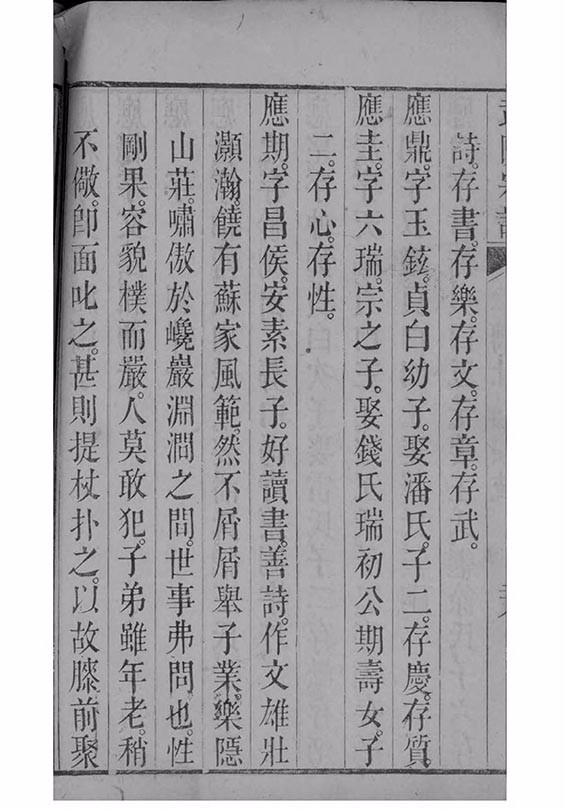 詩。存書。存樂。存文。存章。存武。
應鼎。字玉鉉。貞白幼子。娶潘氏。子二。存慶。存質。
應圭。字六瑞。宗之子。娶錢氏瑞初公期壽女。子
二。存心。存性。
應期。字昌侯。安素長子。好讀書。善詩。作文雄壯
灝瀚。饒有蘇家風範。然不屑屑舉子業。樂隱
山莊。嘯傲於巉巖淵澗之間。世事弗問也。性
剛果。容貌樸而嚴。人莫敢犯。子弟雖年老。稍
不儆。卽面叱之。甚則提杖扑之。以故膝前聚